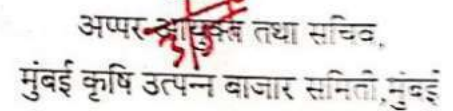 अप्पर आयुक्त तथा सचिव,
मुंबई कृषि उत्पन्न बाजार समिती,मुंबई